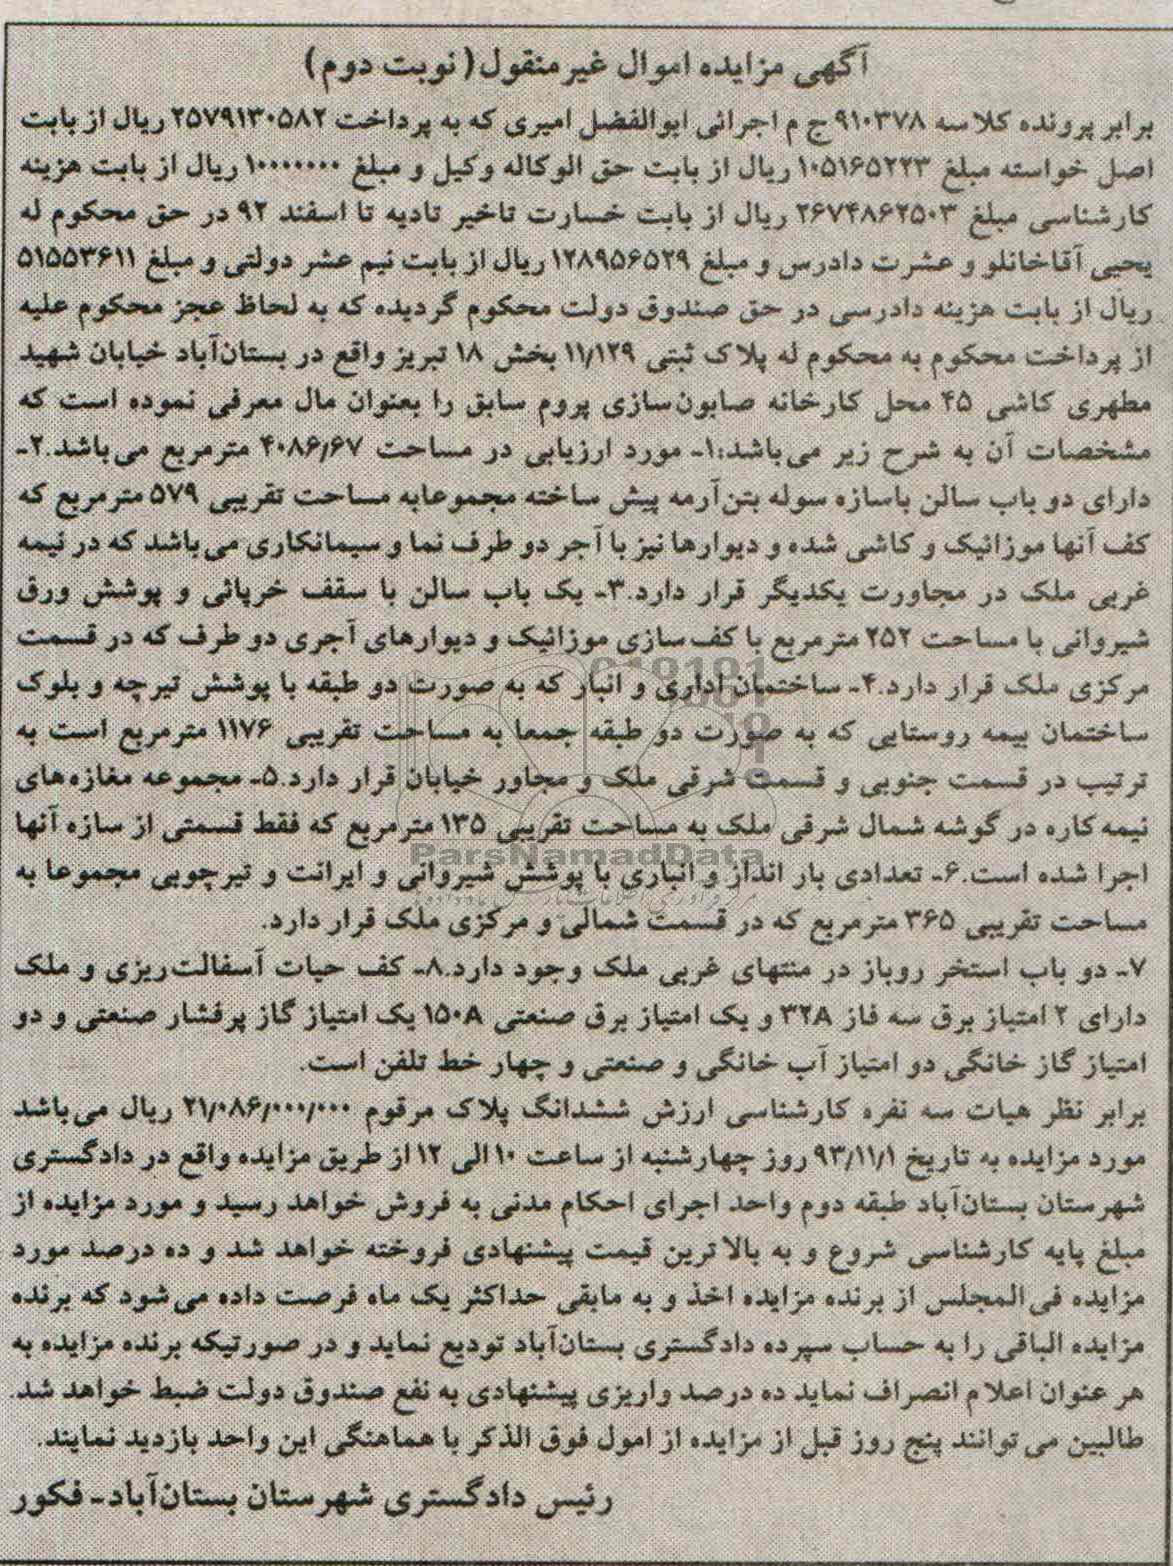 آگهی مزایده اموال غیرمنقول(نوبت دوم)
برابر پرونده کلاسه ۹۱۰۳۷۸ ج م اجرائی ابوالفضل امیری که به پرداخت ۲۵۷۹۱۳۰۵۸۲ ریال از بابت
اصل خواسته مبلغ ۱۰۵۱۶۵۲۲۳ ریال از بابت حق الوکاله وکیل و مبلغ ۱۰۰۰۰۰۰۰ ریال از بابت هزینه
کارشناسی مبلغ ۲۶۷۴۸۶۲۵۰۳ ریال از بابت خسارت تاخیر تادیه تا اسفند ۹۲ در حق محکوم له
یحیی آقاخانلو و عشرت دادرس و مبلغ ۱۲۸۹۵۶۵۲۹ ریال از بابت نیم عشر دولتی و مبلغ ۵۱۵۵۳۶۱۱
ریال از بابت هزینه دادرسی در حق صندوق دولت محکوم گردیده که به لحاظ عجز محکوم علیه
از پرداخت محکوم به محکوم له پلاک ثبتی ۱۱/۱۲۹ بخش ۱۸ تبریز واقع در بستان‌آباد خیابان شهید
مطهری کاشی ۴۵ محل کارخانه صابون‌سازی پروم سابق را بعنوان مال معرفی نموده است که
مشخصات آن به شرح زیر می‌باشد:۱- مورد ارزیابی در مساحت ۴۰۸۶/۶۷ مترمربع می‌باشد.۲-
دارای دو باب سالن باسازه سوله بتن‌آرمه پیش ساخته مجموعابه مساحت تقریبی ۵۷۹ مترمربع که
کف آنها موزائیک و کاشی شده و دیوارها نیز با آجر دو طرف نما و سیمانکاری می‌باشد که در نیمه
غربی ملک در مجاورت یکدیگر قرار دارد.۳- یک باب سالن با سقف خرپائی و پوشش ورق
شیروانی با مساحت ۲۵۲ مترمربع با کف‌سازی موزائیک و دیوارهای آجری دو طرف که در قسمت
مرکزی ملک قرار دارد.۴- ساختمان اداری و انبار که به صورت دو طبقه با پوشش تیرچه و بلوک
ساختمان بیمه روستایی که به صورت دو طبقه جمعا به مساحت تقریبی ۱۱۷۶ مترمربع است به
ترتیب در قسمت جنوبی و قسمت شرقی ملک و مجاور خیابان قرار دارد.۵- مجموعه مغازه‌های
نیمه‌کاره در گوشه شمال شرقی ملک به مساحت تقریبی ۱۳۵ مترمربع که فقط قسمتی از سازه آنها
ParsNamadData
اجرا شده است.۶- تعدادی بار انداز و انباری با پوشش شیروانی و ایرانت و تیرچوبی مجموعا به
مساحت تقریبی ۳۶۵ مترمربع که در قسمت شمالی و مرکزی ملک قرار دارد.
۷- دو باب استخر روباز در منتهای غربی ملک وجود دارد.۸- کف حیات آسفالت‌ریزی و ملک
دارای ۲ امتیاز برق سه فاز ۳۲A و یک امتیاز برق صنعتی ۱۵۰A یک امتیاز گاز پرفشار صنعتی و دو
امتیاز گاز خانگی دو امتیاز آب خانگی و صنعتی و چهار خط تلفن است.
برابر نظر هیات سه نفره کارشناسی ارزش ششدانگ پلاک مرقوم ۲۱/۰۸۶/۰۰۰/۰۰۰ ریال می‌باشد
مورد مزایده به تاریخ ۹۳/۱۱/۱ روز چهارشنبه از ساعت ۱۰ الی ۱۲ از طریق مزایده واقع در دادگستری
شهرستان بستان‌آباد طبقه دوم واحد اجرای احکام مدنی به فروش خواهد رسید و مورد مزایده از
مبلغ پایه کارشناسی شروع و به بالاترین قیمت پیشنهادی فروخته خواهد شد و ده درصد مورد
مزایده فی‌المجلس از برنده مزایده اخذ و به مابقی حداکثر یک ماه فرصت داده می‌شود که برنده
مزایده الباقی را به حساب سپرده دادگستری بستان‌آباد تودیع نماید و در صورتیکه برنده مزایده به
هر عنوان اعلام انصراف نماید ده درصد واریزی پیشنهادی به نفع صندوق دولت ضبط خواهد شد.
طالبین می‌توانند پنج روز قبل از مزایده از امول فوق الذکر با هماهنگی این واحد بازدید نمایند.
رئیس دادگستری شهرستان بستان‌آباد- فکور